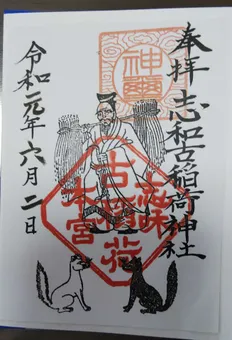 奉拝
志和古稲荷神社
神璽
志味
古稲荷
本宮
令和元年六月二日